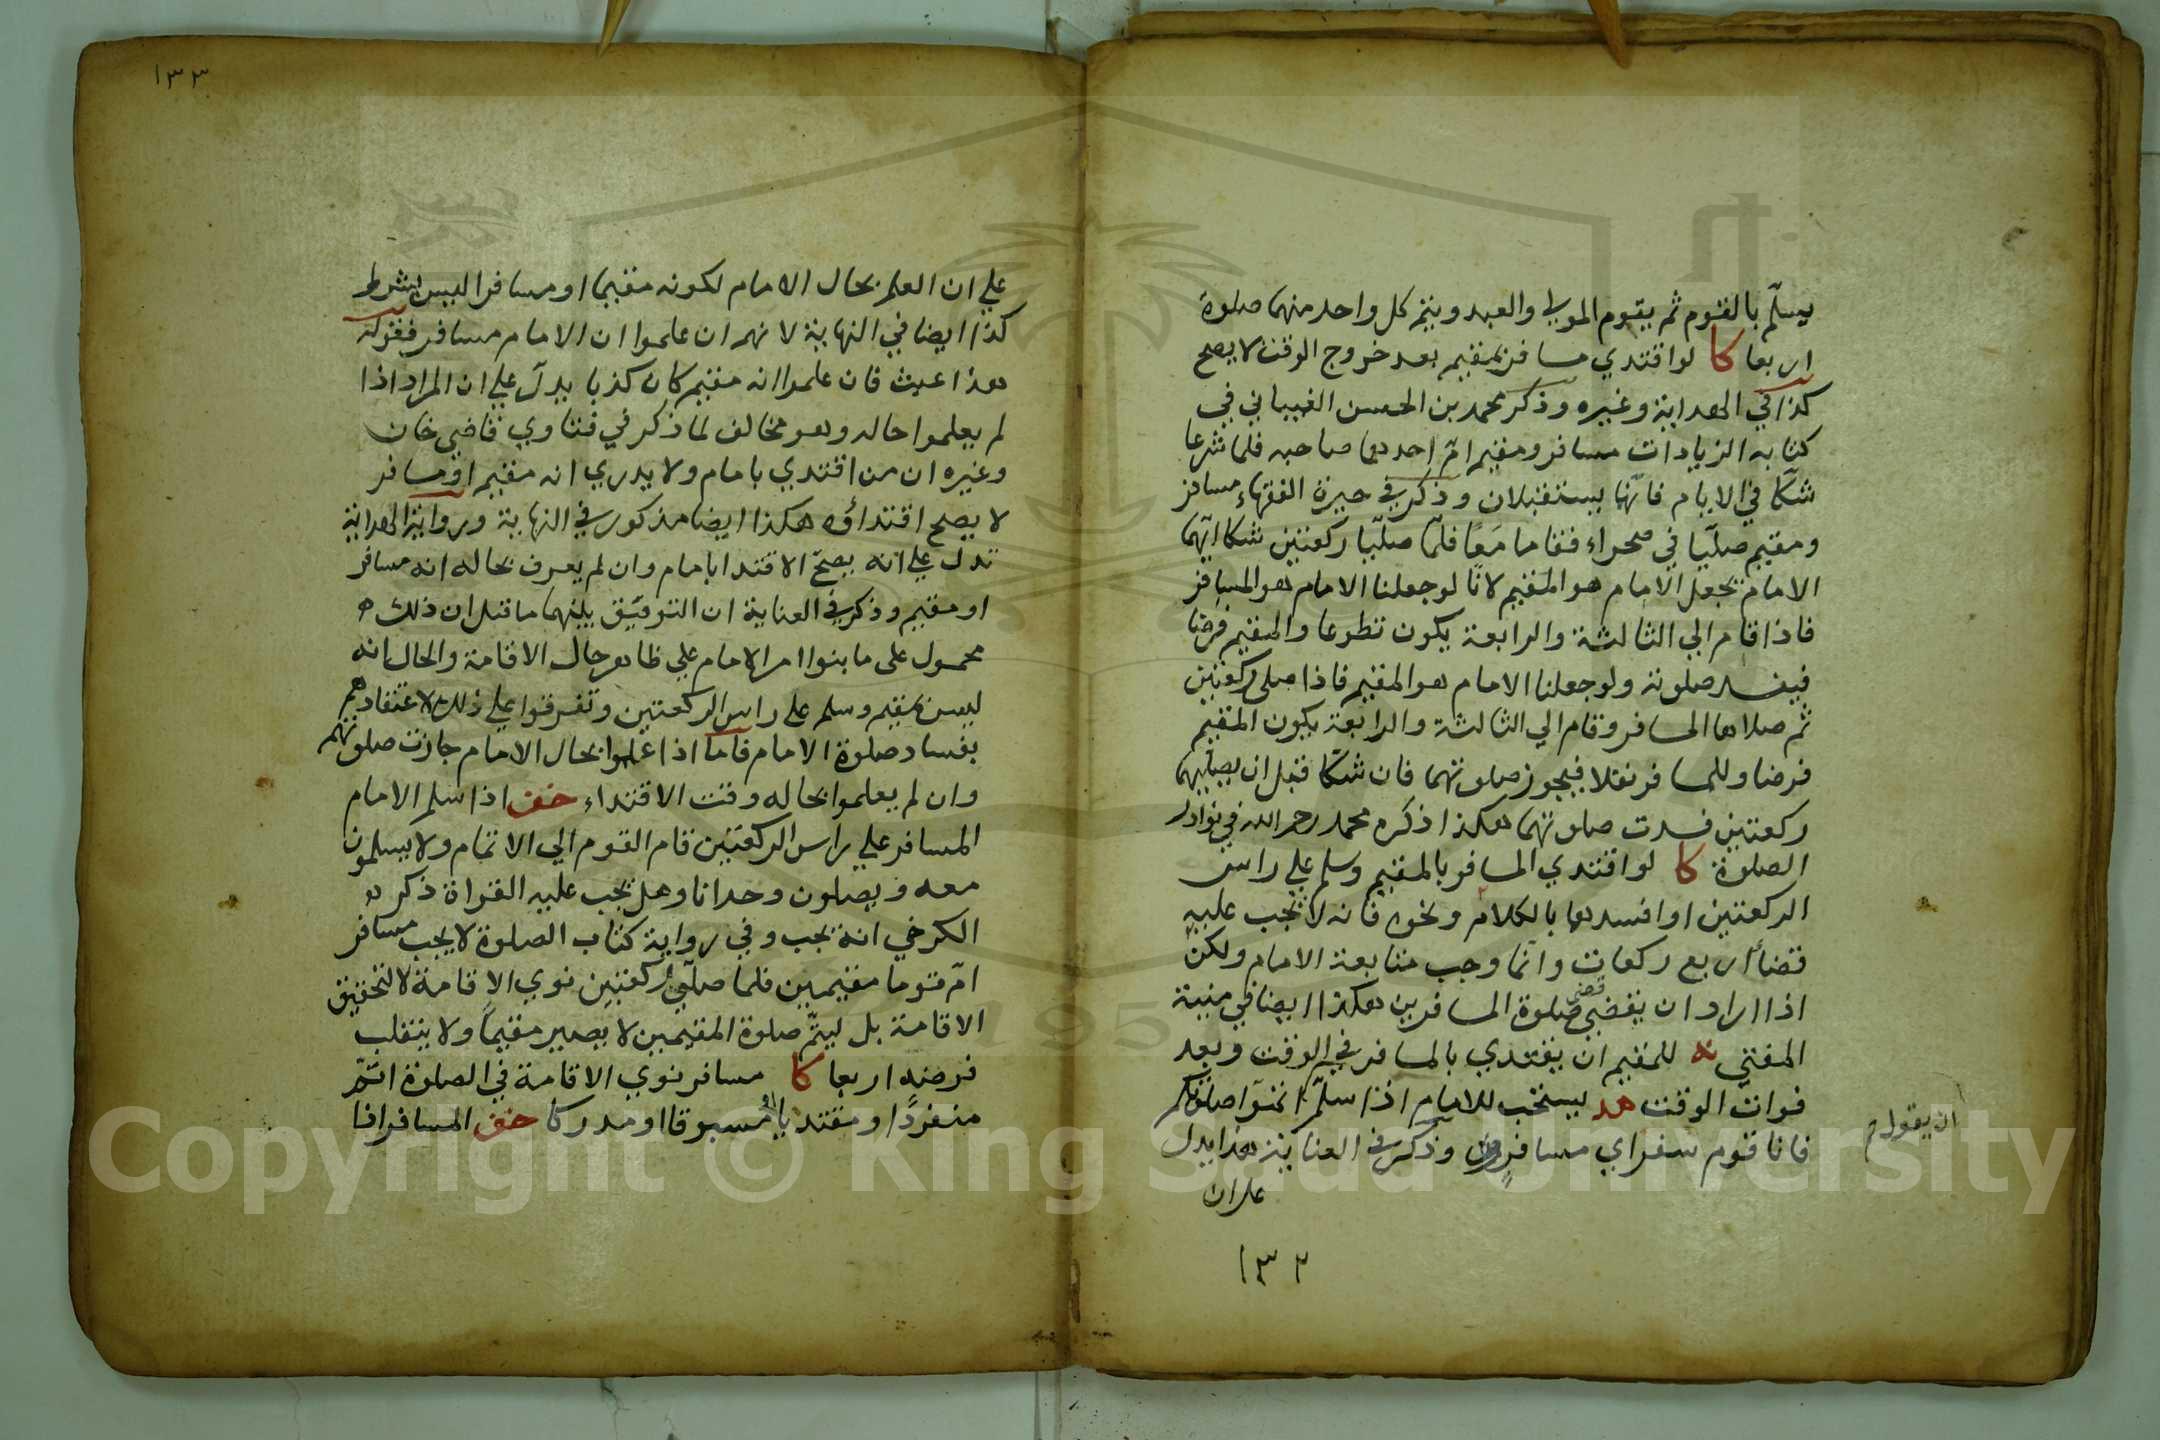 يسلّم بالقوم ثم يقوم المولي والعبد ويتم كل واحد منهما صلوة
اربعا كا لو اقتدي مسافر بمقيم بعد خروج الوقت لا يصح
كذا في الهداية وغيره وذكر محمد بن الحسن الشيباني في
كتابه الزيادات مسافر ومقيم امّ احدهما صاحبه فلما شرعا
شكّا في الامام فانّهما يستقبلان وذكر في حيرة الفقهاء مسافر
ومقيم صلّيا في صحراء فقاما معًا فلمّا صلّيا ركعتين شكا ايّهما
الامام نجعل الامام هو المقيم لانّا لو جعلنا الامام هو المسافر
فاذا قام الي الثالثة والرابعة يكون تطوعا والمقيم فرضا
فيفسد صلوته ولو جعلنا الامام هو المقيم فاذا صلى ركعتين
ثم صلاها المسافر وقام الي الثالثة والرابعة يكون المقيم
فرضا وللمسافر نفلا فيجوز صلوتهما فان شكّا قبل ان يصلّيهما
ركعتين فسدت صلوتهما هكذا ذكره محمد رحمه الله في نوادر
الصلوة كا لو اقتدي المسافر بالمقيم وسلم علي راس
الركعتين او افسدها بالكلام ونحوه فانه لا يجب عليه
قضاء اربع ركعات وانّما وجب متابعة الامام ولكن
اذا اراد ان يقضي قضى صلوة المسافرين هكذا ايضا في منية
المفتي للمقيم ان يقتدي بالمسافر في الوقت وبعد
فوات الوقت هد يستحب للامام اذا سلّم اتمّوا صلوتكم
ان يقول م
فانا قوم سفر اي مسافرون وذكر في العناية هذا يدل
على ان
١٣٢
١٣٣
علي ان العلم بحال الامام لكونه مقيما او مسافرا ليس بشرط
كذا ايضا في النهاية لانهم ان علموا ان الامام مسافر فقوله
هذا عبث فان علموا انه مقيم كان كذبا يدلّ علي ان المراد اذا
لم يعلموا حاله وهو مخالف لما ذكر في فتاوي قاضي خان
وغيره ان من اقتدي بامام ولا يدري انه مقيم او مسافر
لا يصح اقتداؤه هكذا ايضا مذكور في النهاية ورواية الهداية
تدل علي انّه يصحّ الاقتدا بامام وان لم يعرف بحاله انه مسافر
او مقيم وذكر في العناية ان التوفيق بينهما ما قيل ان ذلك
محمول على ما بنوا امر الامام علي ظاهر حال الاقامة والحال انه
ليس بمقيم وسلم على راس الركعتين وتفرقوا علي ذلك لاعتقادهم
بفساد صلوة الامام فاما اذا علموا بحال الامام جازت صلوتهم
وان لم يعلموا بحاله وقت الاقتداء خف اذا سلم الامام
المسافر علي راس الركعتين قام القوم الي الاتمام ولا يسلمون
معه ويصلون وحدانا وهل يجب عليه القراة ذكر
الكرخي انه يجب وفي رواية كتاب الصلوة لا يجب مسافر
امّ قوما مقيمين فلما صلّي ركعتين نوي الاقامة لا لتحقيق
الاقامة بل ليتمّ صلوة المقيمين لا يصير مقيماً ولا ينقلب
فرضه اربعا كا مسافر نوي الاقامة في الصلوة اتمّ
منفردًا او مقتديا او مسبوقا او مدركا خف المسافر اذا